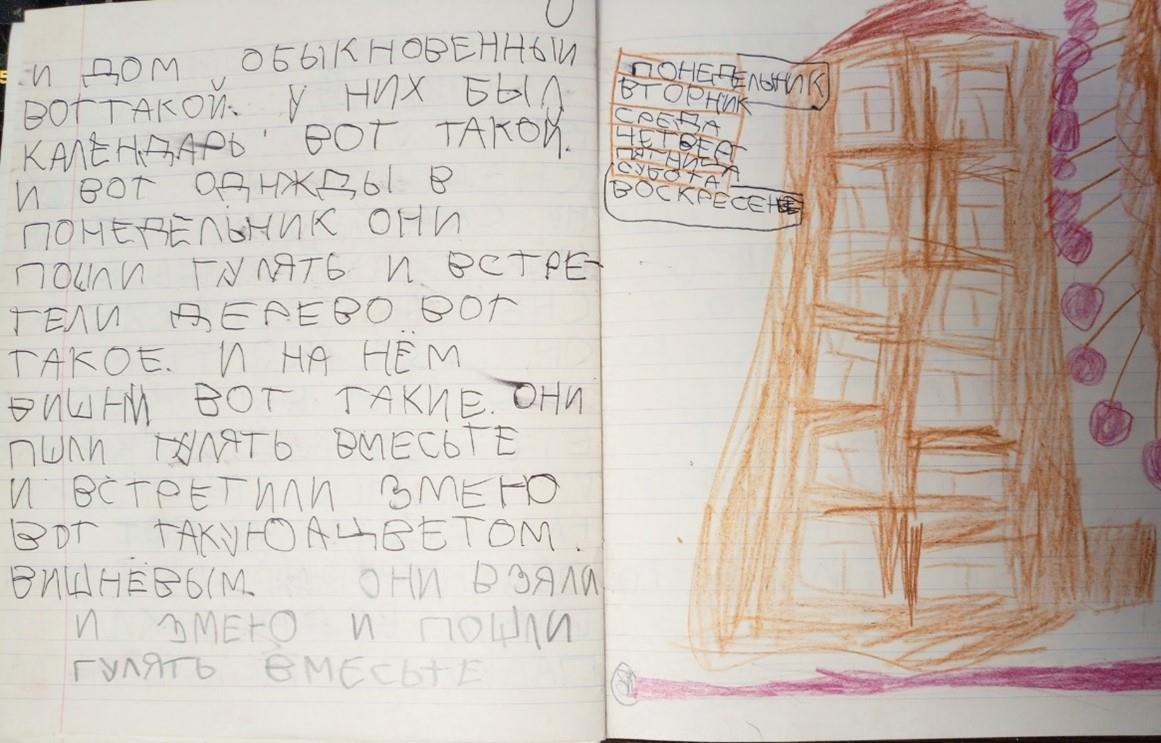 И ДОМ ОБЫКНОВЕННЫЙ
ВОТТАКОЙ. У НИХ БЫЛ
КАЛЕНДАРЬ ВОТ ТАКОЙ.
И ВОТ ОДНЖДЫ В
ПОНЕДЕЛЬНИК ОНИ
ПОШЛИ ГУЛЯТЬ И ВСТРЕ-
ТЕЛИ ДЕРЕВО ВОТ
ТАКОЕ. И НА НЁМ
ВИШНИ ВОТ ТАКИЕ. ОНИ
ПШЛИ ГУЛЯТЬ ВМЕСЬТЕ
И ВСТРЕТИЛИ ЗМЕЮ
ВОТ ТАКУЮАЦВЕТОМ.
ВИШНЁВЫМ. ОНИ ВЗЯЛИ
И ЗМЕЮ И ПОШЛИ
ГУЛЯТЬ ВМЕСЬТЕ
ПОНЕДЕЛЬНИК
ВТОРНИК
СРЕДА
ЧЕТВЕРГ
ПЯТНИЦА
СУБОТА
ВОСКРЕСЕНЕ